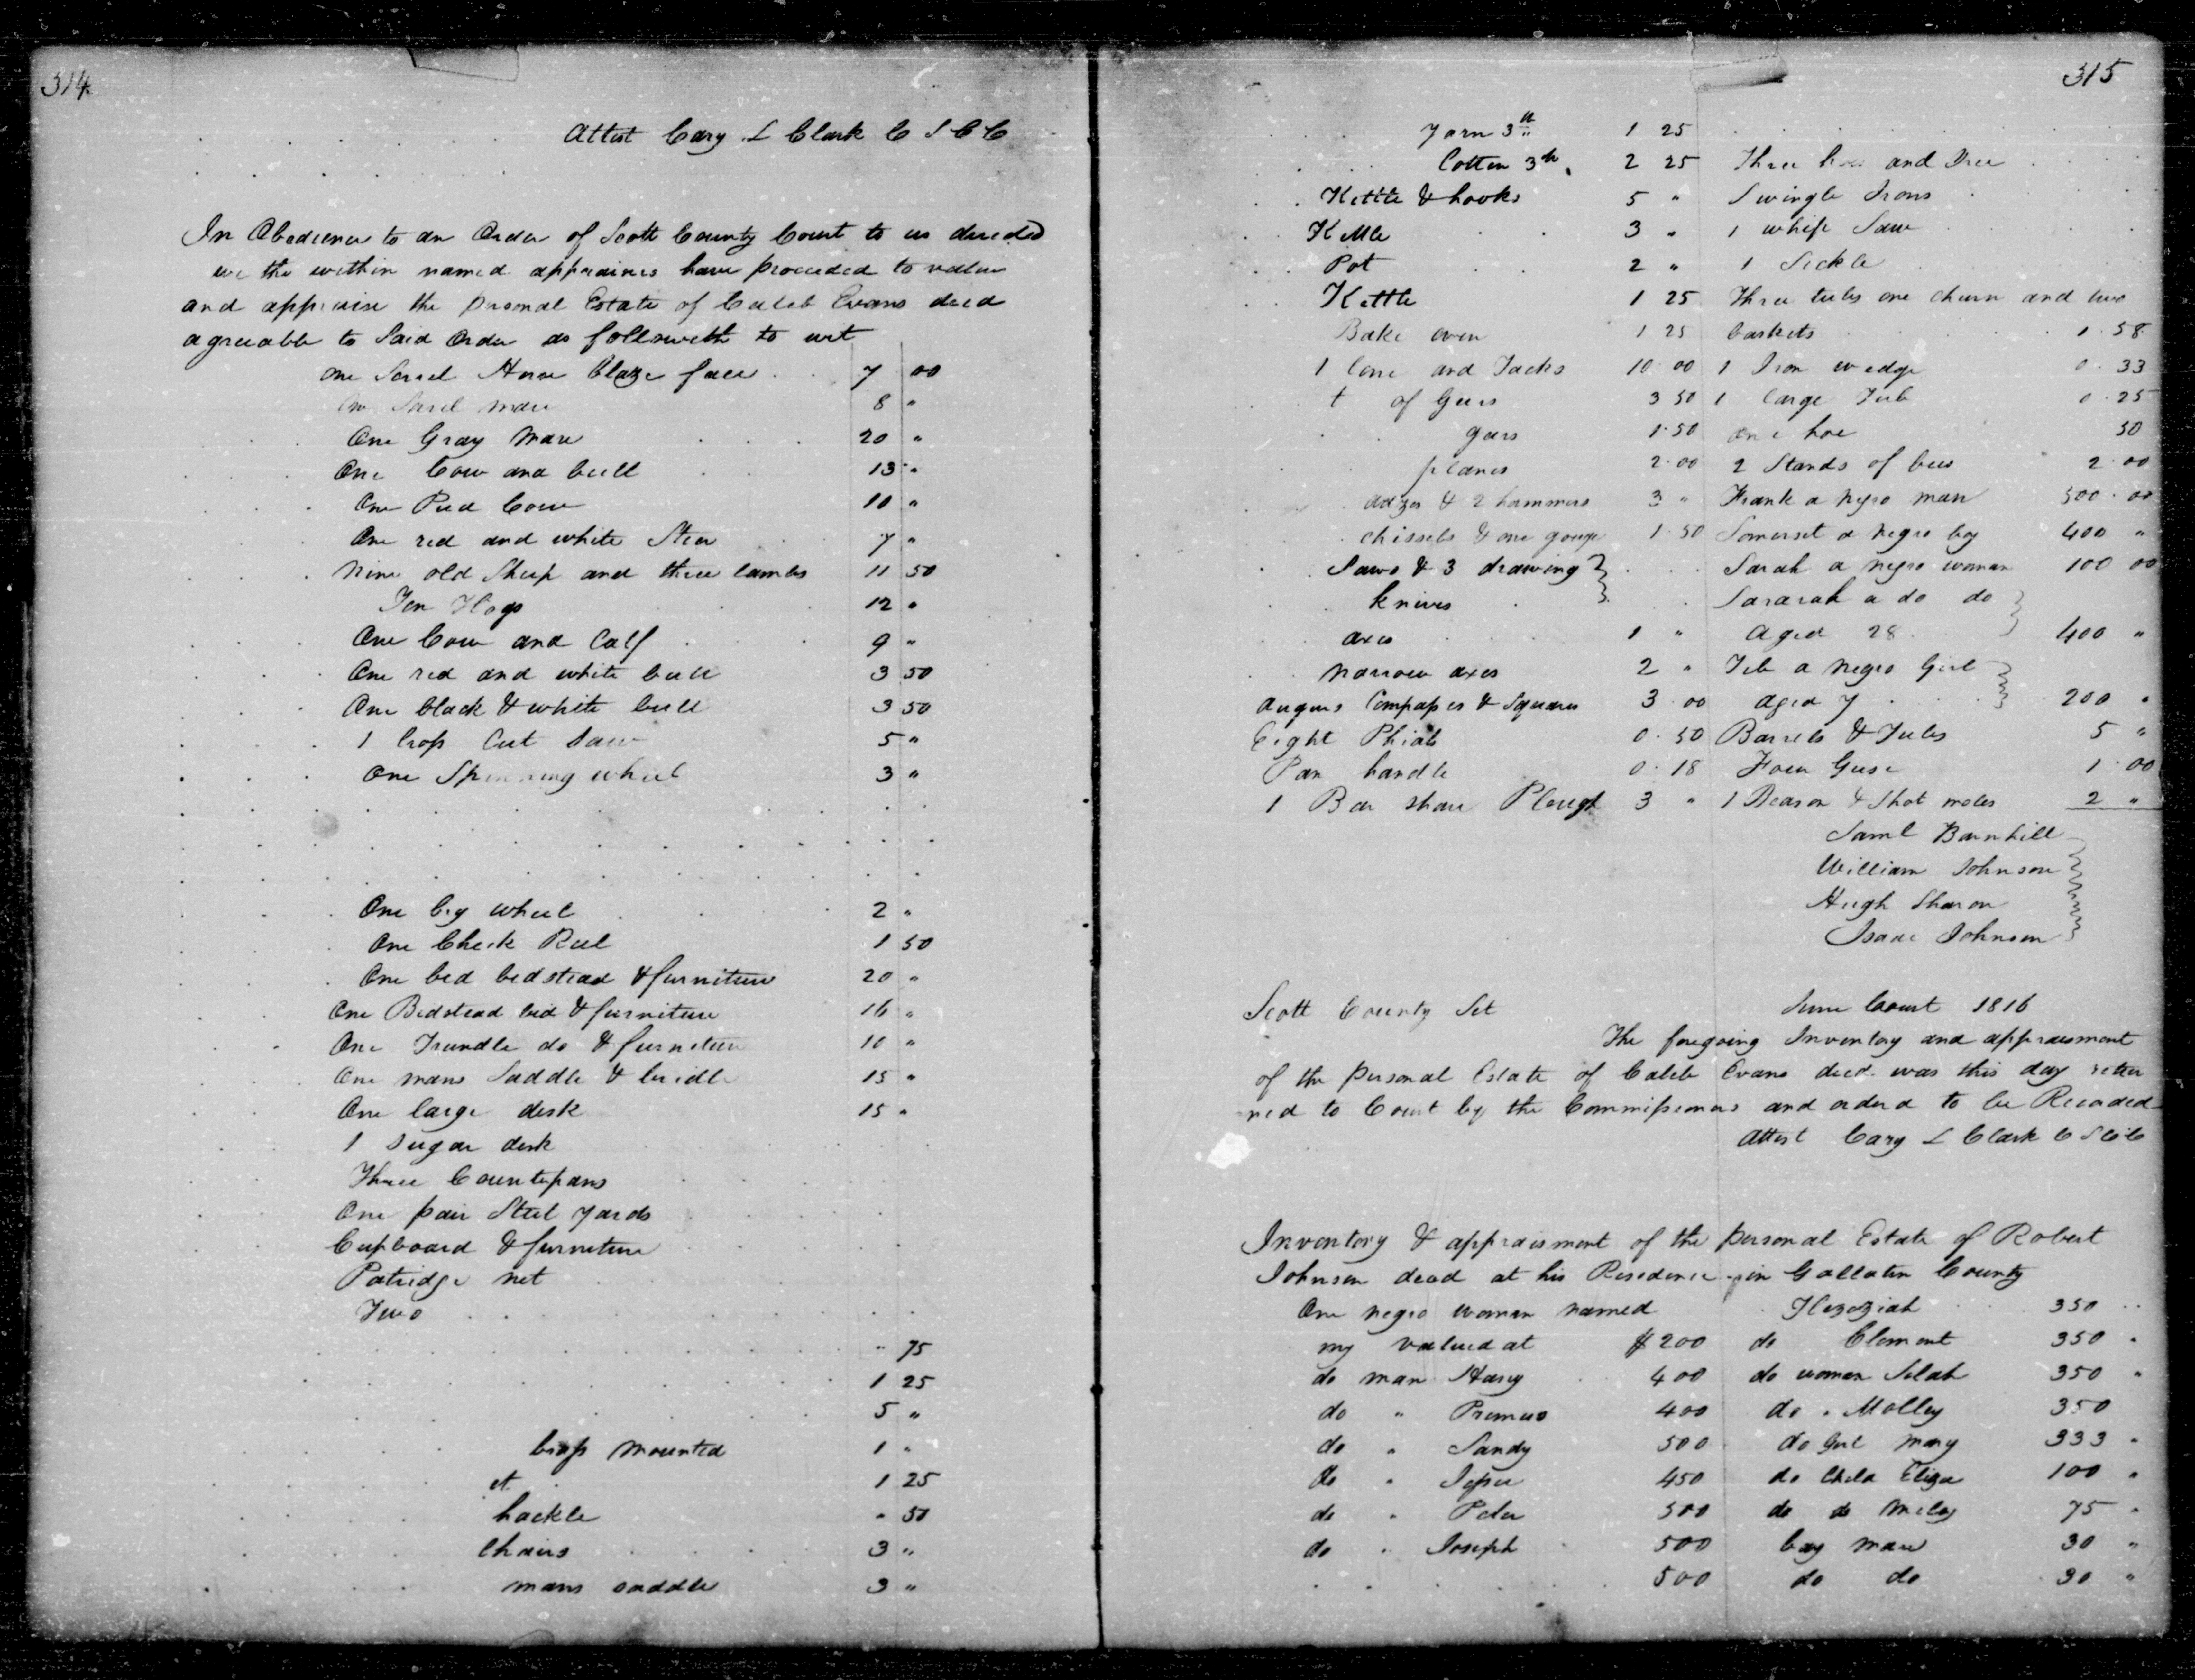 314
Attest Cary L Clark C S C C
In Obedience to an Order of Scott County Court to us directed
we the within named appraisers have proceeded to value
and appraise the personal Estate of Caleb Evans decd
agreeable to Said Order as followeth to wit
One Sorrel Horse Blaze face 7 00
One Sorel mare 8 "
One Gray Mare 20 "
One Cow and bull 13 "
One Pied Cow 10 "
One red and white Steer 7 "
Nine old Sheep and three lambs 11 50
Ten Hogs 12 "
One Cow and Calf 9 "
One red and white bull 3 50
One black & white bull 3 50
1 Cross Cut Saw 5 "
One Spinning wheel 3 "
One big wheel 2 "
One Check Reel 1 50
One bed bedstead & furniture 20 "
One Bedstead bed & furniture 16 "
One Trundle do & furniture 10 "
One mans Saddle & bridle 15 "
One large desk 15 "
1 Sugar desk
Three Counterpans
One pair Steel yards
Cupboard & furniture
Patridge net
Two
" 75
1 25
5 "
brass mounted 1 "
et 1 25
hackle " 50
chairs 3 "
mans saddle 3 "
315
Yarn 3 lb 1 25
Cotten 3 lb 2 25
Kettle & hooks 5 "
Kettle 3 "
Pot 2 "
Kettle 1 25
Bake oven 1 25
1 Cone and Jacks 10 00
t of Gears 3 50
gears 1 50
planes 2 00
adzes & 2 hammers 3 "
chissels & one gouge 1 50
Saws & 3 drawing
knives
axes 1 "
narrow axes 2 "
Augurs Compasses & Squares 3 00
Eight Phials 0 50
Pan handle 0 18
1 Bar share Plough 3 "
Three and Three
Swingle Irons
1 whip Saw
1 Sickle
Three tubs one churn and two
baskets 1 58
1 Iron wedge 0 33
1 large Tub 0 25
one hoe 50
2 Stands of bees 2 00
Frank a negro man 500 00
Somerset a negro boy 400 "
Sarah a negro woman 100 00
Sararah a do do
aged 28 400 "
a negro Girl
aged 7 200 "
Barrels & Tubs 5 "
Four Geese 1 00
1 & Shot 2 "
Saml Barnhill
William Johnson
Hugh Sharon
Isaac Johnson
Scott County Sct June Court 1816
The foregoing Inventory and appraisment
of the personal Estate of Caleb Evans decd was this day retur
ned to Court by the Commissioners and orderd to be Recorded
Attest Cary L Clark C S C C
Inventory & appraisment of the personal Estate of Robert
Johnson decd at his Residence in Gallatin County
One negro woman named
my valued at $200
do man Harry 400
do " Primus 400
do " Sandy 500
do " Jesse 450
do " Peter 500
do " Joseph 500
500
Hezeziah 350
do Clement 350 "
do woman Selah 350 "
do " Molley 350
do Girl Mary 333 "
do Child Eliza 100 "
do do Miley 75 "
bay mare 30 "
do do 30 "